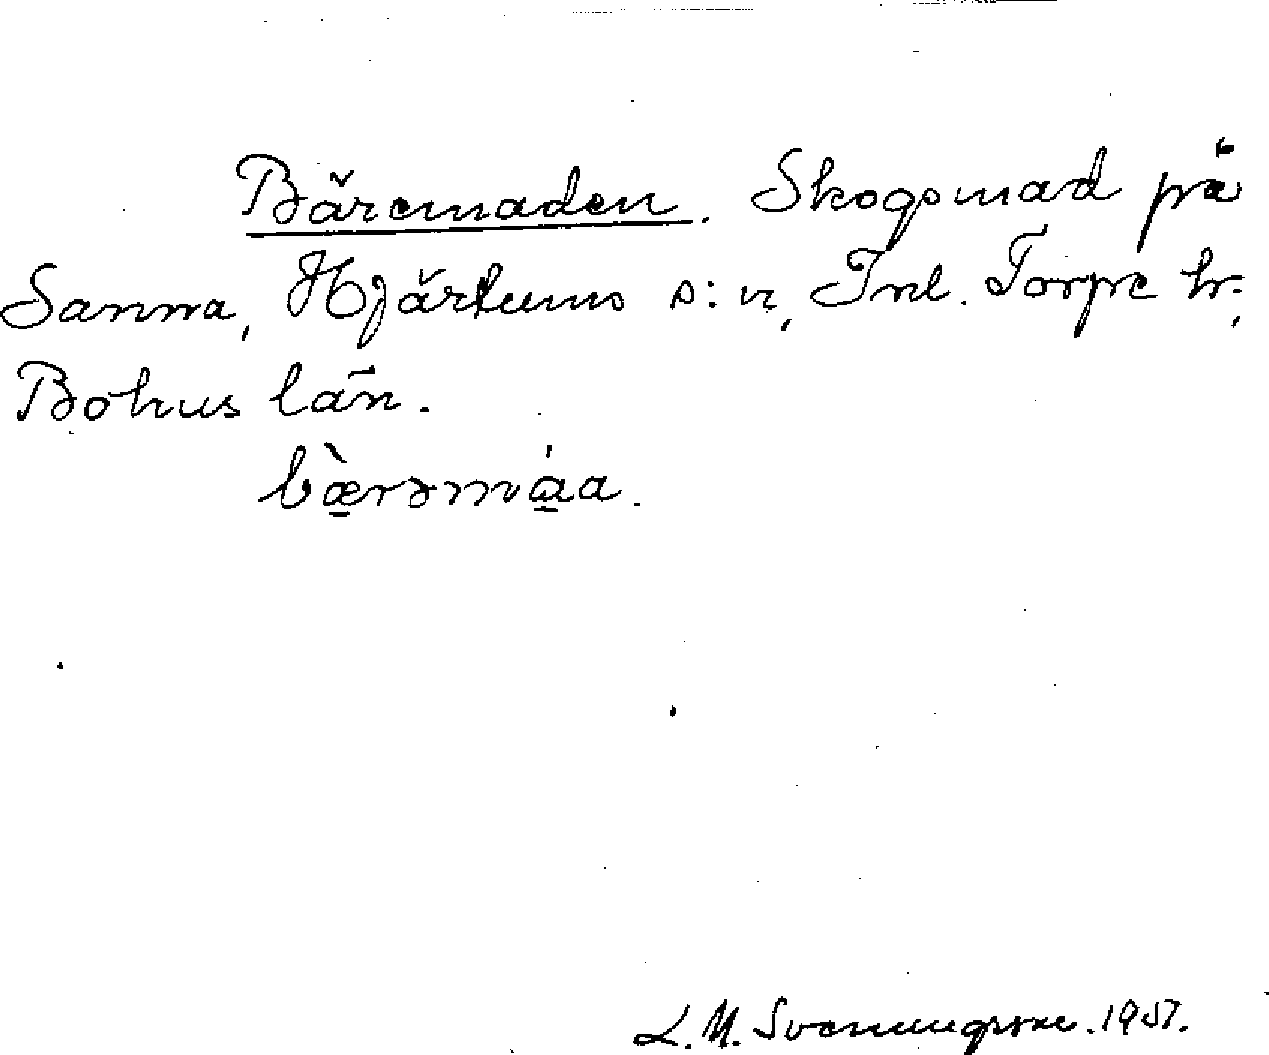 Bäremaden. Skogsmad på
Sanna, Hjärtums s:n, Inl. Torpe hr.,
Bohus län.
bæ̠̀rəmá̠a.
L. M. Svenungsson. 1957.